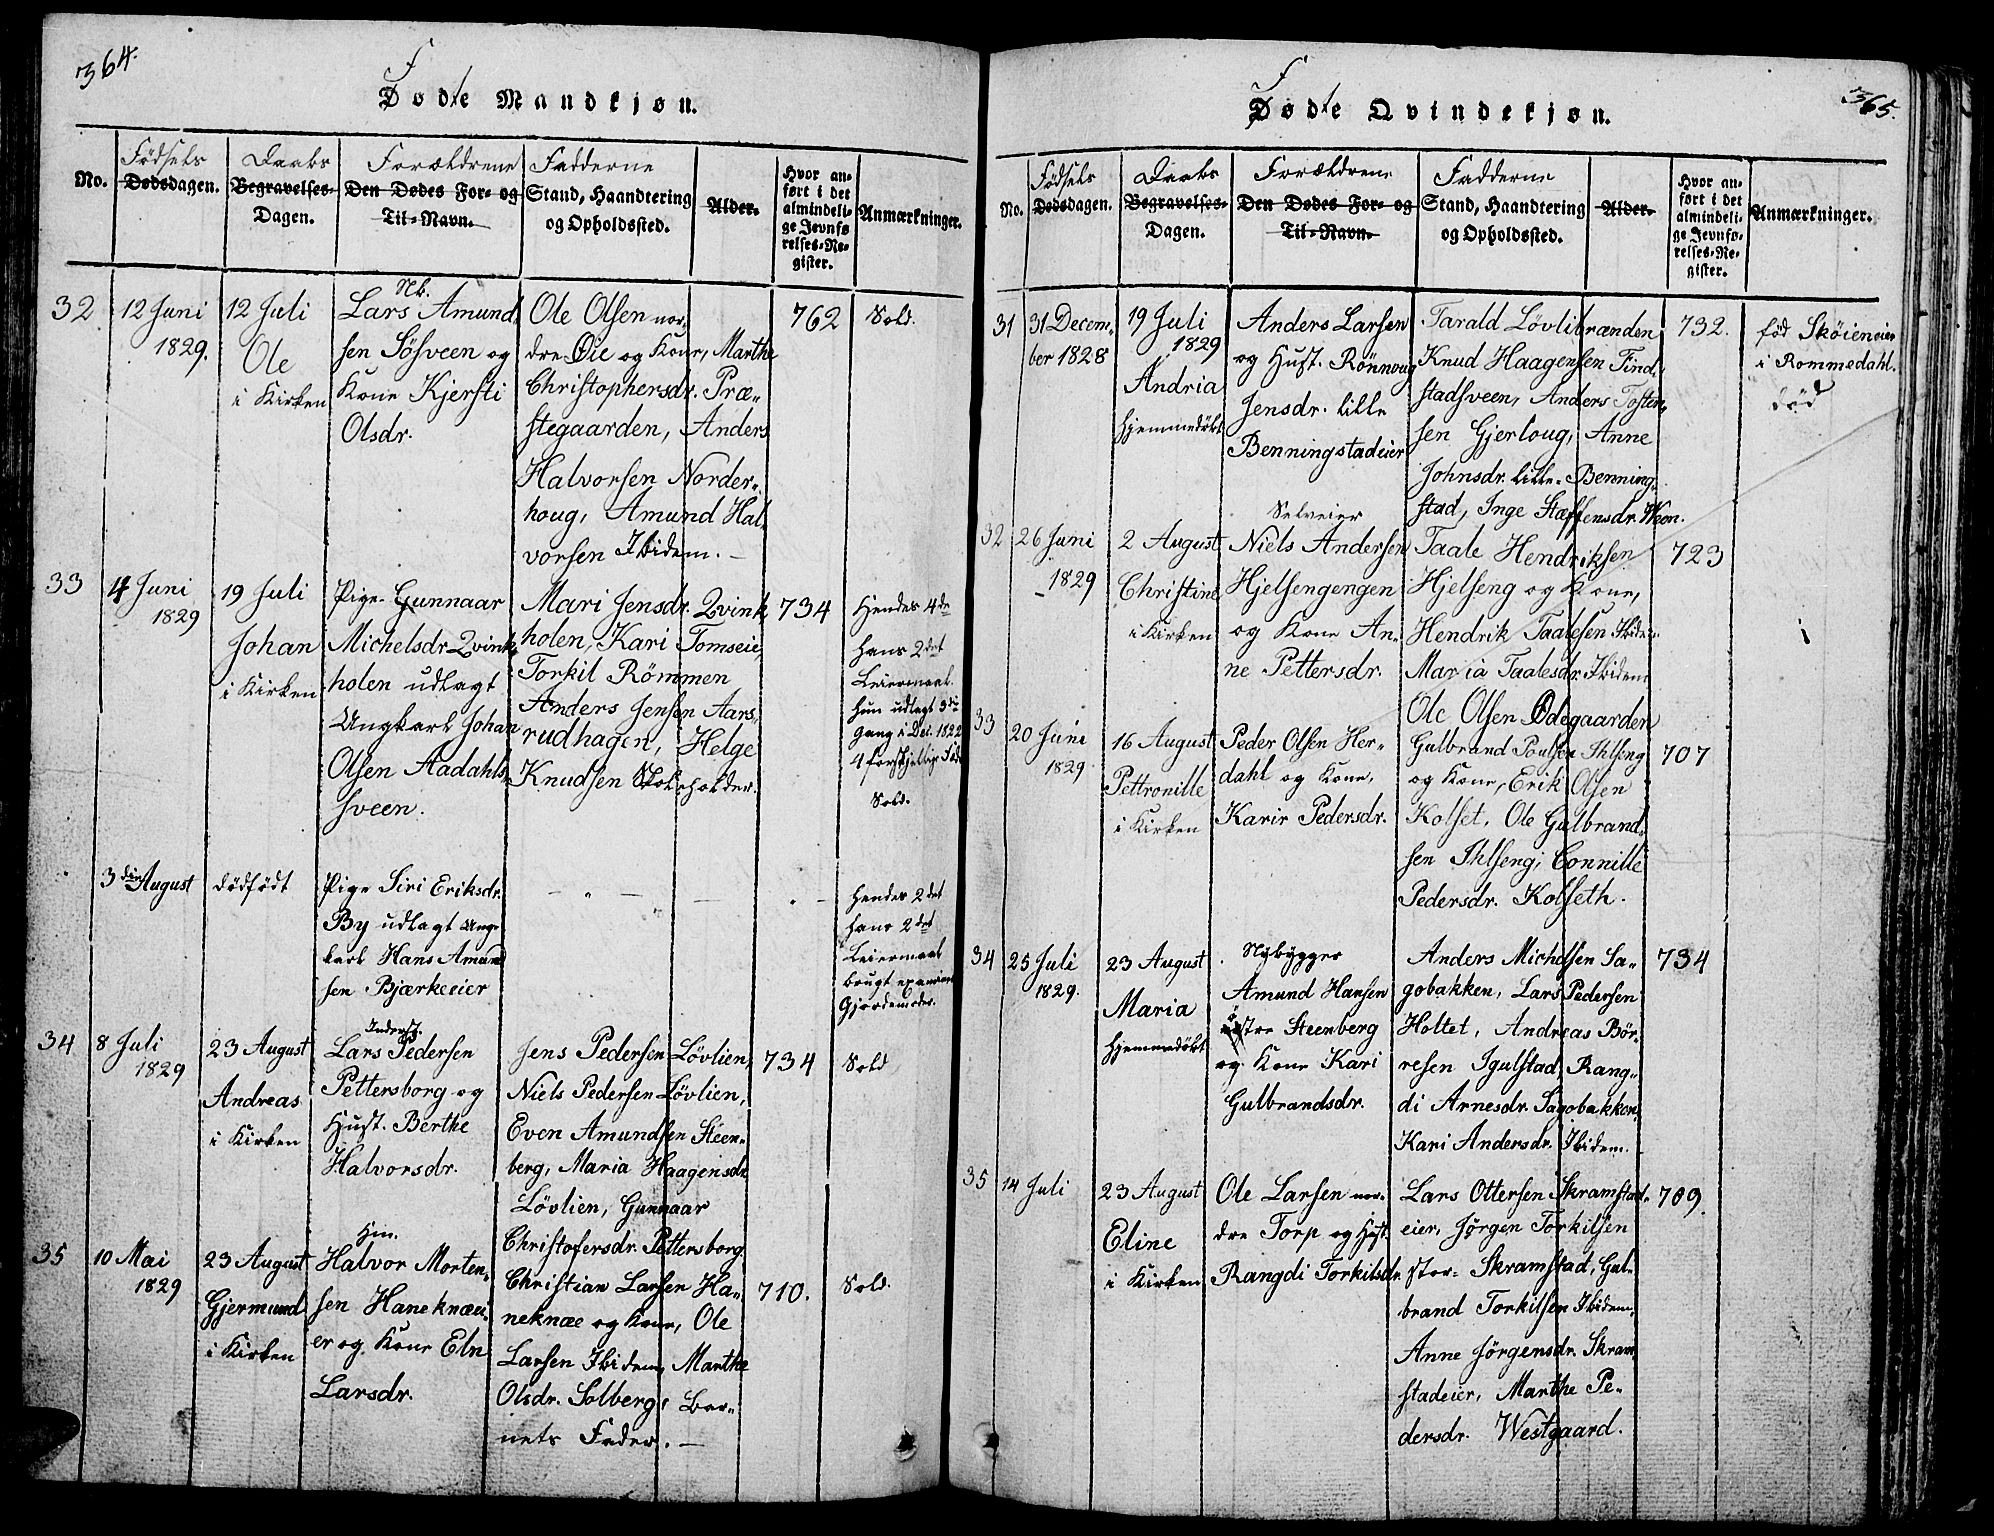 364.
F
Dødte Mandkjøn.
No.
Födsels
Dødsdagen.
Daabs
Begravelses-
Dagen.
Forældrene
Den Dødes For- og
Til-Navn.
Fadderne
Stand, Haandtering
og Opholdssted.
Alder.
Hvor an-
ført i det
almindeli-
ge Jevnfø-
relses-Re-
gister.
Anmærkninger.
32
12 Juni
1829.
12 Juli
Ole
i Kirken
Nb.
Lars Amund
sen Sösveen og
Kone Kjersti
Olsdr.
Ole Olsen nor-
dre Öie og Kone, Marthe
Christophersdr. Præ-
stegaarden, Anders
Halvorsen Norder-
houg, Amund Hal
vorsen Ibidem. -
762
Sold.
33
4 Juni
1829
19 Juli
Johan
i Kirken
Pige Gunnaar
Michelsdr Qvink
holen udlagt
Ungkarl Johan
Olsen Aadahls
sveen.
Mari Jensdr. Qvink
holen, Kari Tomseie,
Torkil Römmen
Anders Jensen Aars-
rudhagen, Helge
Knudsen Skoleholder.
734
Hendes 4de
hans 2det
Leiermaal.
hun udlagt 3die
gang i Dec. 1822
4 forskjellige
Sold.
3die August
dödfödt
Pige Siri Eriksdr.
By udlagt Ung-
karl Hans Amund
sen Bjærkeeier
- " - - " -
Hendes 2det
hans 2det
Leiermaal
brugt
Gjordemoder.
34
8 Juli
1829
23 August
Andreas
i Kirken
Inderst.
Lars Pedersen
Pettersborg og
Hust. Berthe
Halvorsdr.
Jens Pedersen Lövlien,
Niels Pedersen Lövlien,
Even Amundsen Steen-
berg, Maria Haagensdr
Lövlien, Gunnaar
Christofersdr. Pettersborg
734
Sold
35
10 Mai
1829
23 August
Gjermund
i Kirken
Hm.
Halvor Morten-
sen Haneknæei-
er og Kone Eln
Larsdr.
Christian Larsen Ha-
neknæe og Kone, Ole
Larsen Ibidem, Marthe
Olsdr. Solberg, Bar-
nets Fader. -
710.
Sold.
365.
F
Dødte Qvindekjøn.
No.
Födsels
Dødsdagen.
Daabs
Begravelses-
Dagen.
Forældrene
Den Dødes For- og
Til-Navn.
Fadderne
Stand, Haandtering
og Opholdssted.
Alder.
Hvor an-
ført i det
almindeli-
ge Jevnfø-
relses-Re-
gister.
Anmærkninger.
31
31 Decem-
ber 1828
19 Juli
1829
Andria
Hjemmedöbt
Anders Larsen
og Hust. Rönnoug
Jensdr. lille
Benningstadeier
Tarald Lövlibrænden
Knud Haagensen Find-
stadsveen, Anders Tosten-
sen Gjerloug, Anne
Johnsdr. lille Benning-
stad, Inge Staffensdr.Ween.
732.
född Sköieneier
i Rommedahl.
död
32
26 Juni
1829
2 August
Christine
i Kirken
Selveier
Niels Andersen
Hjelsengengen
og Kone An-
ne Pettersdr.
Taale Hendriksen
Hjelseng og Kone,
Hendrik Taalesen Ibidem
Maria Taalesdr. Ibidem
Ole Olsen Ödegaarden
723
33
20 Juni
1829
16 August
Pettronille
i Kirken
Peder Olsen Her-
dahl og Kone,
Karir Pedersdr.
Gulbrand Poulsen Ihlseng
og Kone, Erik Olsen
Kolset, Ole Gulbrand-
sen Ihlseng, Connille
Pedersdr. Kolseth.
707
34
25 Juli
1829.
23 August
Maria
Hjemmedöbt
Nybygger
Amund Hansen
östre Steenberg
og Kone Kari
Gulbrandsdr.
Anders Michelsen Sa-
gobakken, Lars Pedersen
Holtet, Andreas Bör-
resen Igulstad, Rang-
di Arnesdr. Sagobakken,
Kari Andersdr. Ibidem.
734
35
14 Juli
23 August
Eline
i Kirken
Ole Larsen nor-
dre Torp og Hust.
Rangdi Torkilsdr.
Lars Ottersen Skramstad-
eier, Jørgen Torkilsen
stor- Skramstad, Gul-
brand Torkilsen Ibidem,
Anne Jørgensdr. Skram-
stadeier, Marthe Pe-
dersdr. Westgaard.
709.